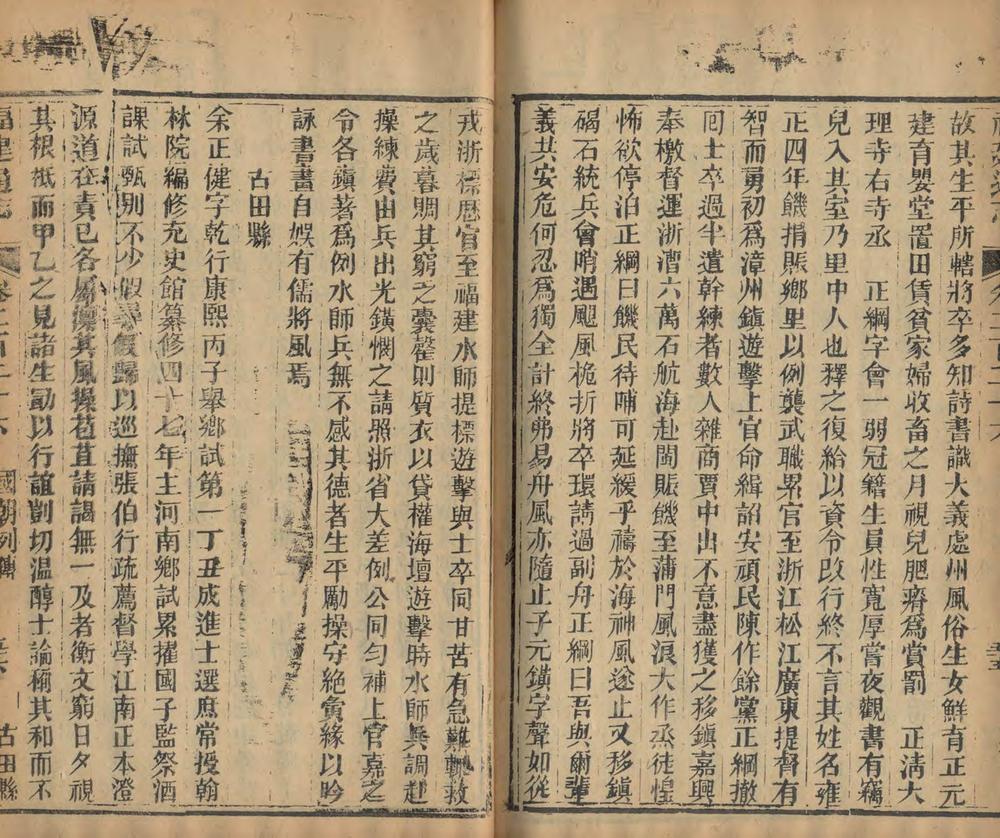 故其生平所轄將卒多知詩書識大義處州風俗生女鮮有正元
建育嬰堂置田賃貧家婦收畜之月視兒肥瘠爲賞罰　正淸大
理寺右寺丞　正綱字會一弱冠籍生員性寬厚嘗夜觀書有竊
兒入其室乃里中人也釋之復給以資令改行終不言其姓名雍
正四年饑捐賑鄉里以例襲武職累官至浙江松江廣東提督有
智而勇初爲漳州鎭遊擊上官命緝詔安頑民陳作餘黨正綱撤
回士卒過半遣幹練者數人雜商賈中出不意盡獲之移鎭嘉興
奉檄督運浙漕六萬石航海赴閩賑饑至蒲門風浪大作丞徒惶
怖欲停泊正綱曰饑民待哺可延緩乎禱於海神風遂止又移鎭
碣石統兵會哨遇颶風桅折將卒環請過副舟正綱曰吾與爾輩
義共安危何忍爲獨全計終弗易舟風亦隨止子元鐄字聲如從
戎浙標歷官至福建水師提標遊擊與士卒同甘苦有急難輒救
之歲暮賙其窮乏囊罄則質衣以貸權海壇遊擊時水師兵調赴
操練費由兵出光鐄憫之請照浙省大差例公同勻補上官嘉之
令各鎭著爲例水師兵無不感其德者生平勵操守絶夤緣以吟
詠書畫自娛有儒將風焉
古田縣
余正健字乾行康熙丙子舉鄉試第一丁丑成進士選庶常授翰
林院編修充史館纂修四十七年主河南鄉試累擢國子監祭酒
課試甄別不少假尋假歸以巡撫張伯行疏薦督學江南正本澄
源道在責已各屬凜其風操苞苴請謁無一及者衡文窮日夕視
其根柢而甲乙之見諸生勖以行誼剴切温醇士論稱其和而不
福建通志　卷二百二十六　國朝列傳　古田縣